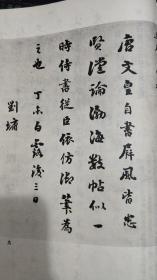 唐文皇自書屏風皆忠
賢讜論渤海數帖似一
時侍書從臣依仿御筆為
之也 丁未白露後三日
劉墉